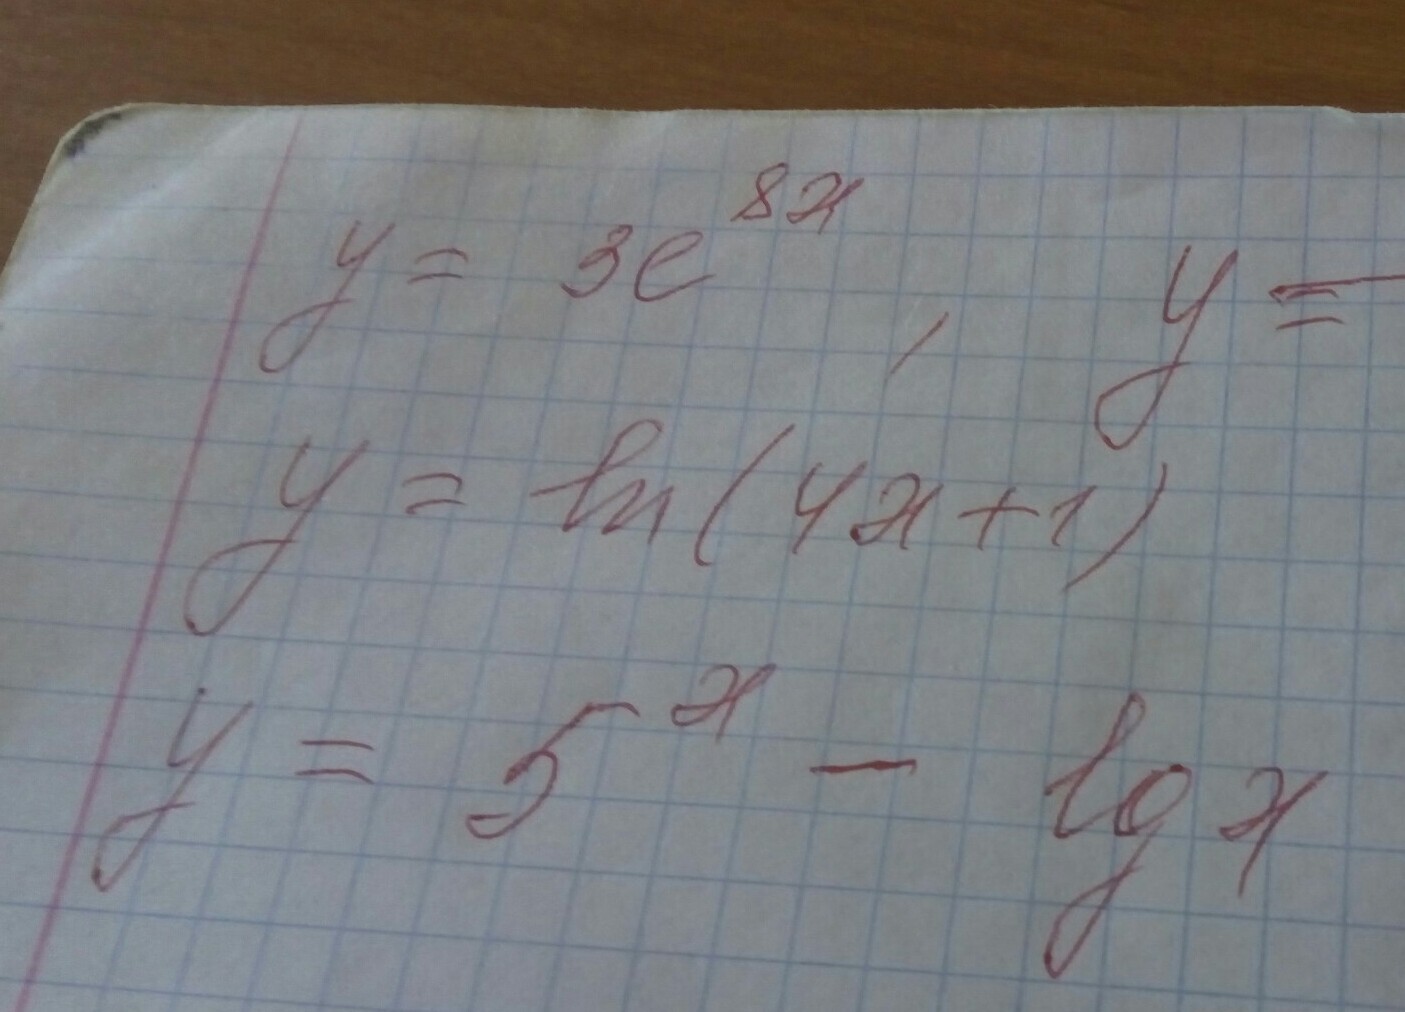 y = 3e^{8x} , y =
y = ln(4x+1)
y = 5^x - lg x